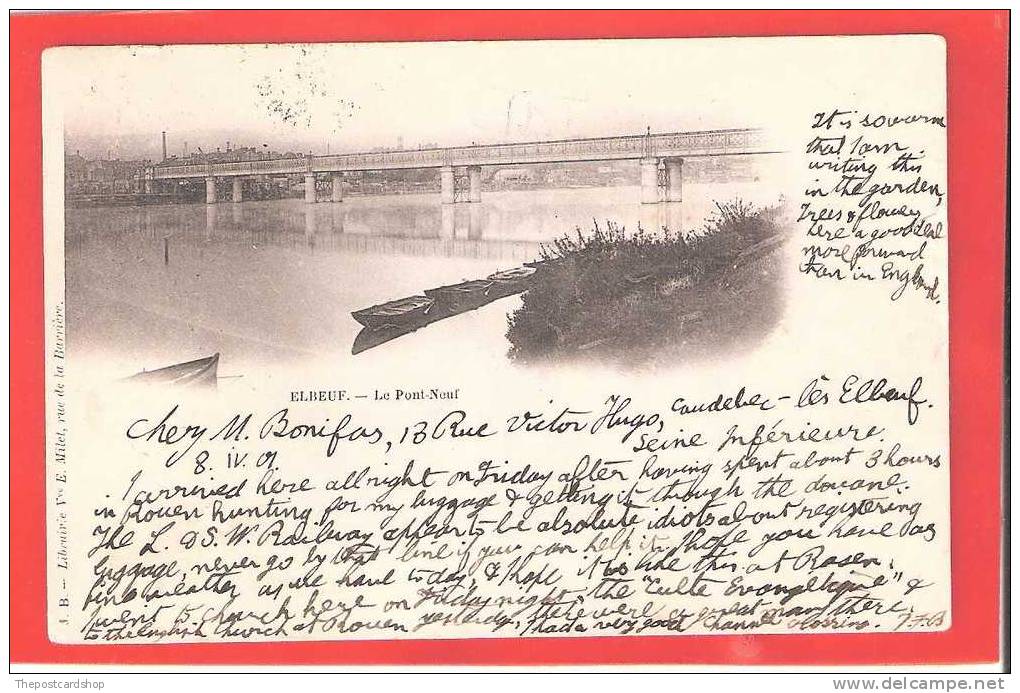 It is so warm
that I am
writing this
in the garden,
Trees & flowers
here a good deal
more forward
than in England.
ELBEUF. — Le Pont-Neuf
J. B. — Librairie Vve E. Milet, rue de la Barrière.
chez M. Bonifas, 13 Rue Victor Hugo, Caudebec-lès Elbeuf.
Seine Inférieure.
8. iv. 01.
I arrived here all right on Friday after having spent about 3 hours
in Rouen hunting for my luggage & getting it through the douane.
The L. & S. W. Railway appear to be absolute idiots about registering
luggage, never go by that line if you can help it. I hope you have as
fine weather as we have today, & I hope it is like this at Rosen.
went to church here on Friday night, the "Culte Evangelique" &
to the English church at Rouen yesterday, there were a great many there,
I had a very good Channel crossing. F. B
Thepostcardshop
www.delcampe.net